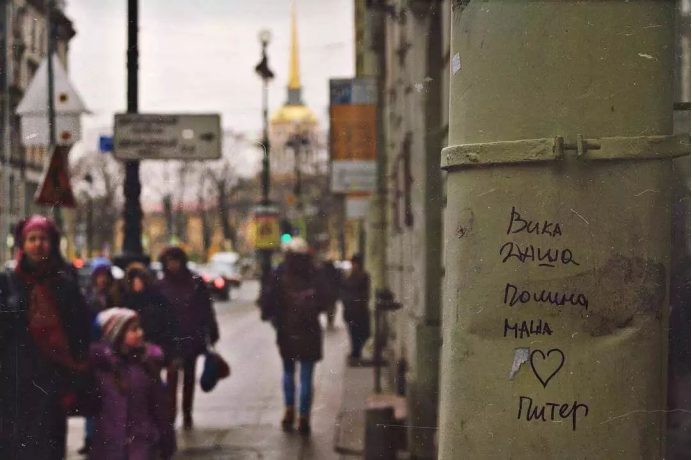 Вика
Даша
Полина
Маша
Питер